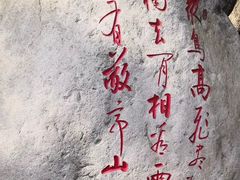 鸟高飞尽
闲相看两
有敬亭山